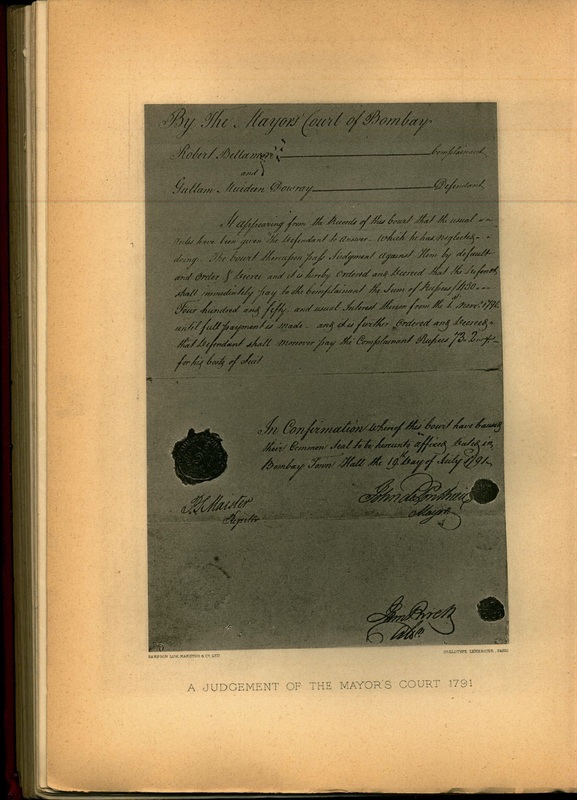 By The Mayors Court of Bombay
Robert Bellamor Complainant
and
Gullam Muideen Dowray Defendant
It appearing from the Records of this Court that the usual
Rules have been given the Defendant to answer which he has neglected
doing. The Court thereupon pass Judgment against Him by default
and Order & Decree and it is hereby Ordered and Decreed that the Defendt
shall immediately pay to the Complainant the Sum of Rupees / 450
Four hundred and fifty and usual Interest thereon from the 1st
until full payment is made and it is further Ordered and Decreed
that Defendant shall moreover pay the Complainant Rupees 73. 2
for his Costs of Suit
In Confirmation whereof this Court have caused
their Common Seal to be hereunto affixed Dated in
Bombay Town Hall the 19th Day of July 1791
Maister
Register
John
Mayor
SAMPSON LOW, MARSTON & CO. LTD
HELIOTYPE LEMERCIER, PARIS
A JUDGEMENT OF THE MAYOR'S COURT 1791